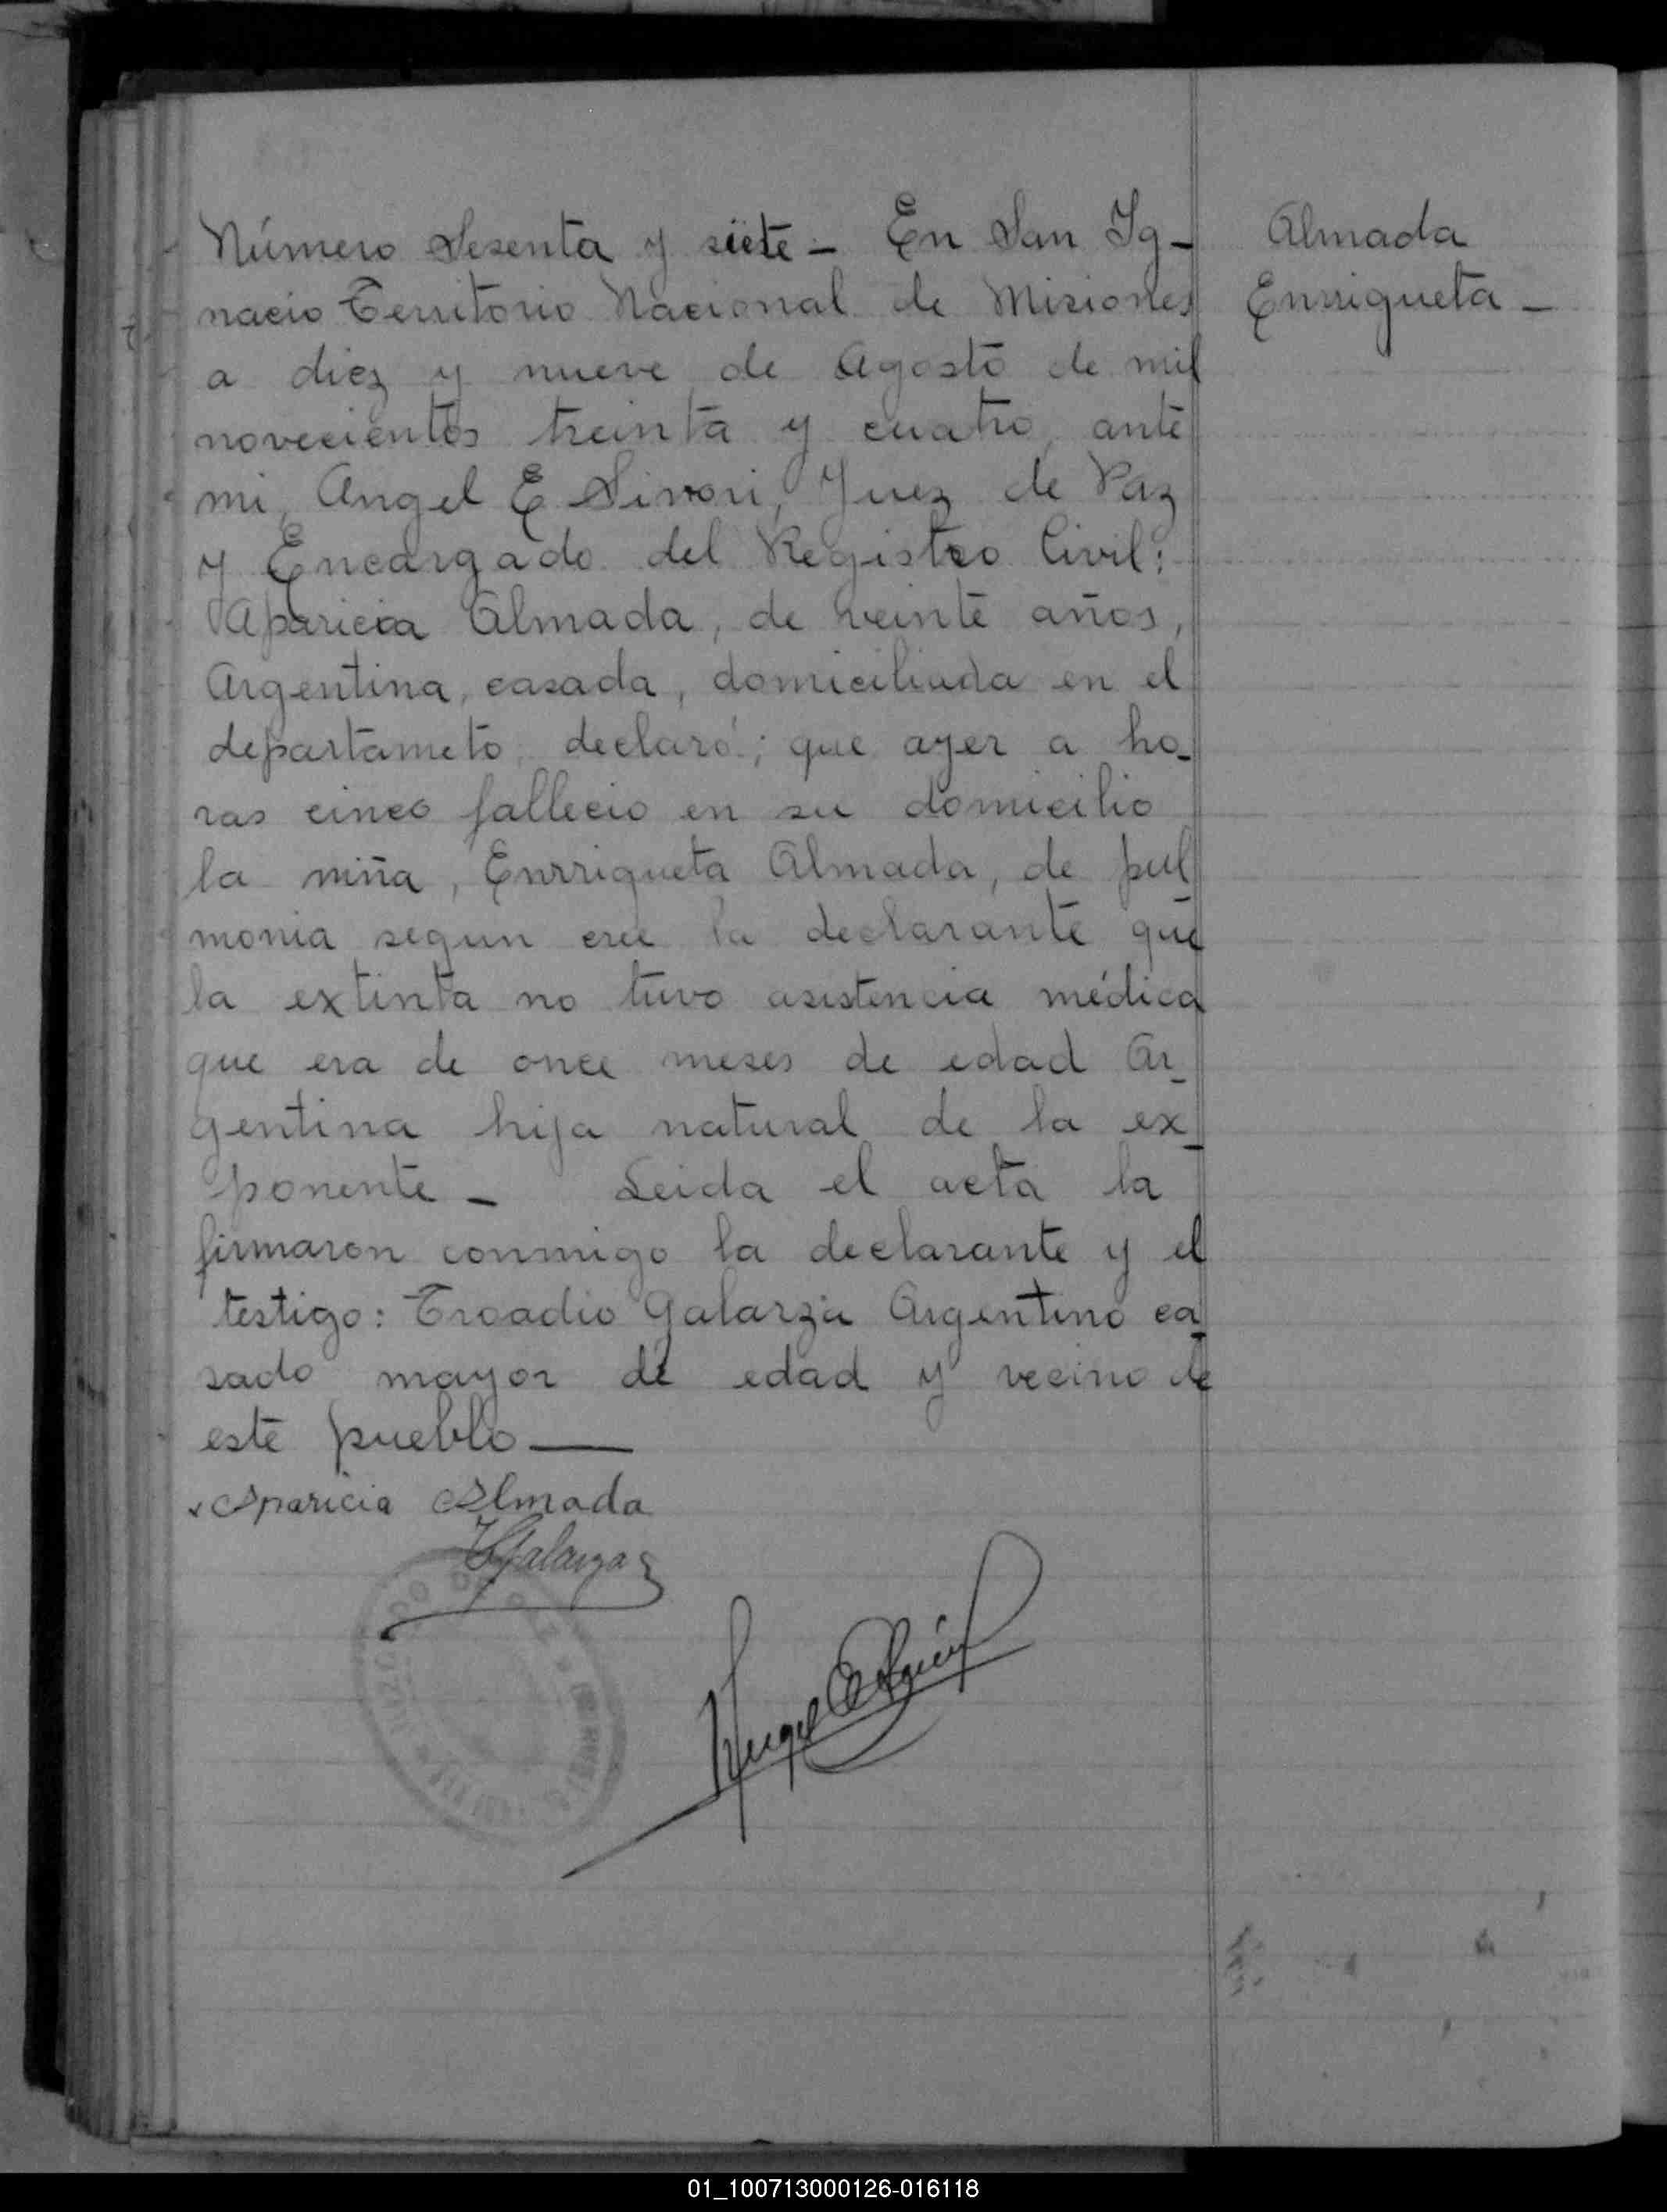 Número Sesenta y siete - En San Ig-
nacio Territorio Nacional de Misiones
a diez y nueve de Agosto de mil
novecientos treinta y cuatro, ante
mi, Angel E Sivori, Juez de Paz
y Encargado del Registro Civil:
Aparicia Almada, de veinte años,
Argentina, casada, domiciliada en el
departameto, declaró; que ayer a ho-
ras cinco fallecio en su domicilio
la niña, Enrriqueta Almada, de pul
monia segun cree la declarante que
la extinta no tuvo asistencia médica
que era de once meses de edad Ar-
gentina hija natural de la ex-
ponente - Leida el acta la
firmaron conmigo la declarante y el
testigo: Troadio Galarza Argentino ca-
sado mayor de edad y vecino de
este pueblo
Aparicia Almada
TGalarza
Angel E
Almada
Enrriqueta -
01_100713000126-016118